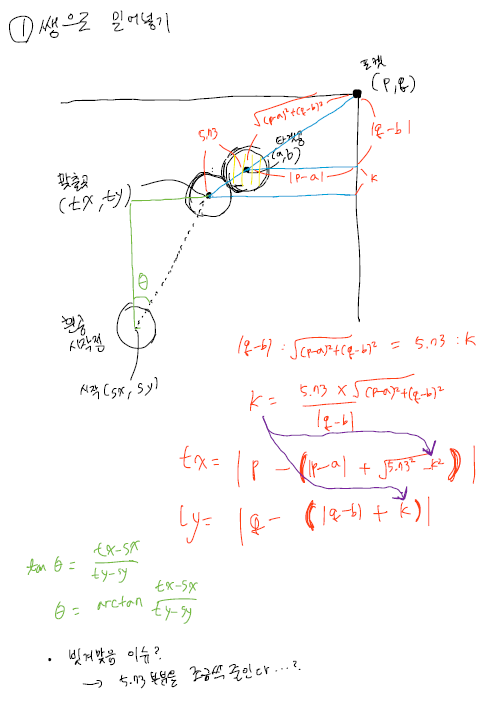 ① 쌩으로 밀어넣기
포켓
(p,q)
√(p-a)²+(q-b)²
5.73
타겟공
(a,b)
|q-b|
|p-a|
k
맞출곳
(tx, ty)
θ
흰공
시작점
시작(sx, sy)
|q-b| : √(p-a)²+(q-b)² = 5.73 : k
k = 5.73 × √(p-a)²+(q-b)² / |q-b|
tx = | p - (|p-a| + √5.73² - k²) |
ty = | q - (|q-b| + k) |
tan θ = tx-sx / ty-sy
θ = arctan tx-sx / ty-sy
• 빗겨맞음 이슈?
→ 5.73 부분을 조금씩 줄인다...?